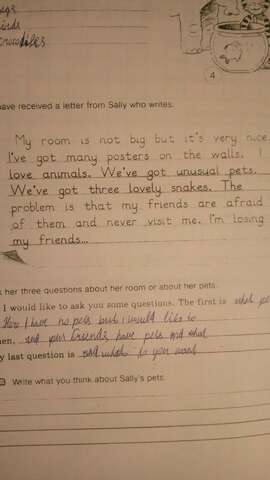 crocodiles
4
have received a letter from Sally who writes.
My room is not big but it's very nice.
I've got many posters on the walls. I
love animals. We've got unusual pets.
We've got three lovely snakes. The
problem is that my friends are afraid
of them and never visit me. I'm losing
my friends...
her three questions about her room or about her pets.
I would like to ask you some questions. The first is what
I have no pets but i would like to
and your friends have pets and what
last question is and what
Write what you think about Sally's pets.